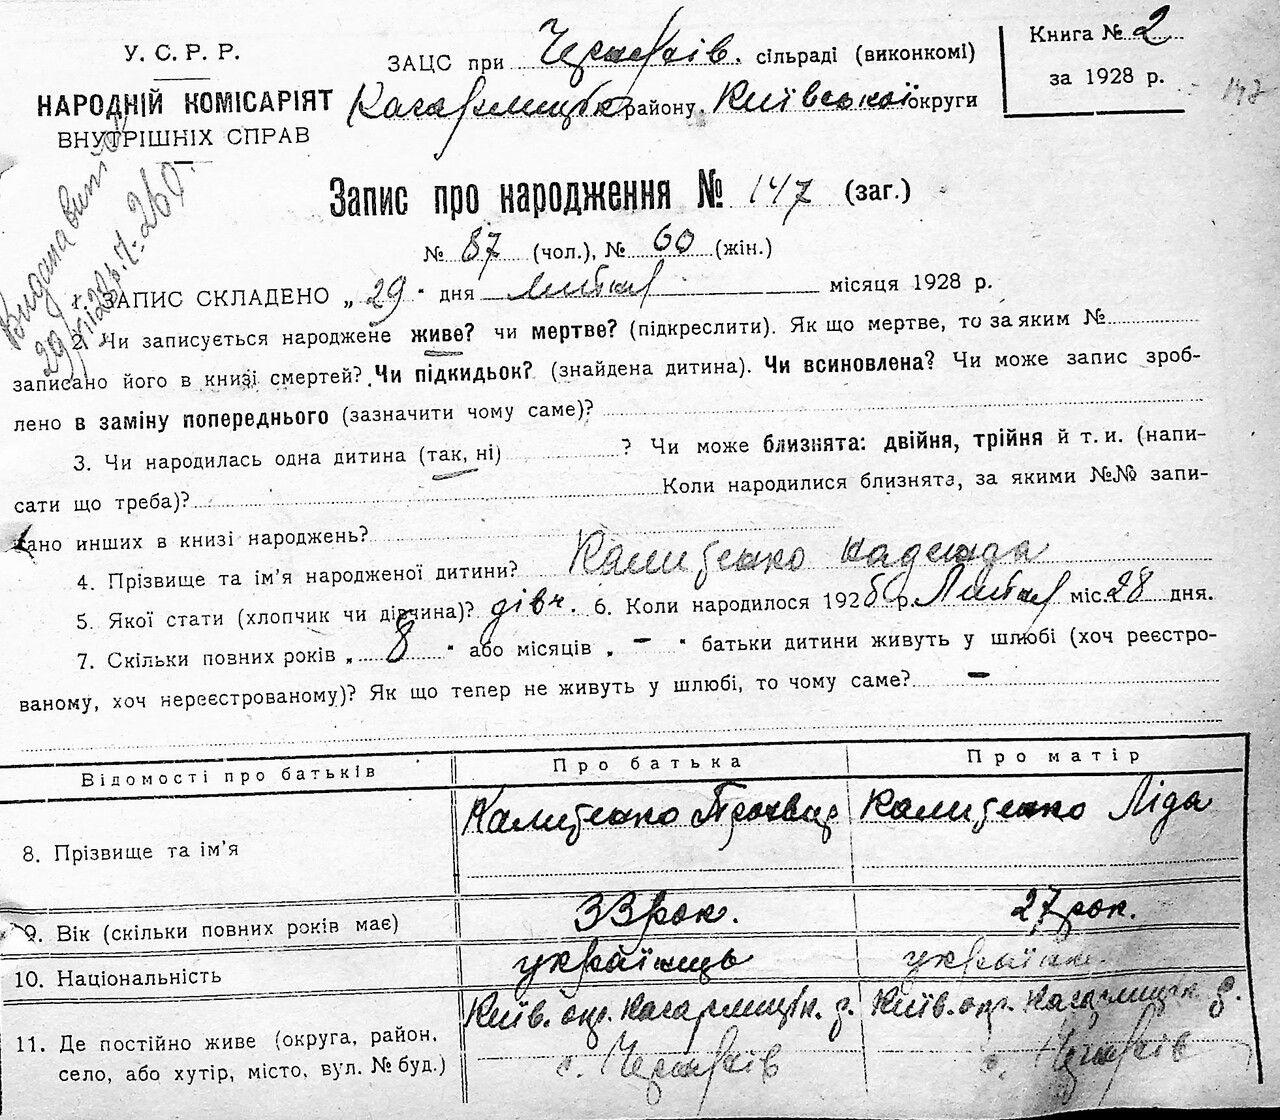 У. С. Р. Р.
НАРОДНІЙ КОМІСАРІЯТ
ВНУТРІШНІХ СПРАВ
ЗАЦС при сільраді (виконкомі)
Кагарлицьк району, Київської округи
Книга № 2
за 1928 р.
147
Запис про народження № 147 (заг.)
№ 87 (чол.), № 60 (жін.)
1. ЗАПИС СКЛАДЕНО „ 29 " дня Липня місяця 1928 р.
2. Чи записується народжене живе? чи мертве? (підкреслити). Як що мертве, то за яким №
записано його в книзі смертей? Чи підкидьок? (знайдена дитина). Чи всиновлена? Чи може запис зроб-
лено в заміну попереднього (зазначити чому саме)?
3. Чи народилась одна дитина (так, ні) ? Чи може близнята: двійня, трійня й т. и. (напи-
сати що треба)? Коли народилися близнята, за якими №№ запи-
сано инших в книзі народжень?
4. Прізвище та ім'я народженої дитини? Надежда
5. Якої стати (хлопчик чи дівчина)? дівч. 6. Коли народилося 1928 р. Липня міс. 28 дня.
7. Скільки повних років „ 8 " або місяців „ – " батьки дитини живуть у шлюбі (хоч реєстро-
ваному, хоч нереєстрованому)? Як що тепер не живуть у шлюбі, то чому саме? –
Відомості про батьків Про батька Про матір
8. Прізвище та ім'я Ліда
9. Вік (скільки повних років має) 33 рок. 27 рок.
10. Національність українець українк.
11. Де постійно живе (округа, район, Київ. окр. Кагарлицьк. р. Київ. окр. Кагарлицьк. р.
село, або хутір, місто, вул. № буд.) с. с.